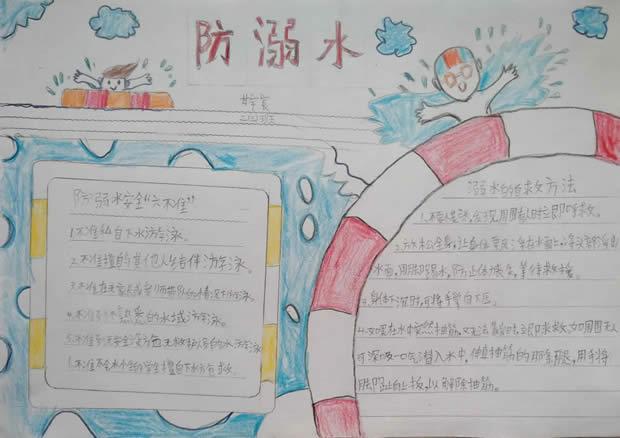 防溺水
二(2)班
防弱水安全"六不准"
1.不准私自下水游泳。
2.不准擅自与其他人结伴游泳。
3.不准在无家长或老师带队的情况下游泳。
4.不准到不熟悉的水域游泳。
5.不准到无安全设施、无救护人员的水域游泳
6.不准不会水性的学生擅自下水施救
溺水自救方法
1.不要慌张,发现周围有人时立即呼救。
2.放松全身,让身体漂浮在水面上,将头部浮出
水面,用脚踢水,防止体力丧失,等待救援。
3.身体下沉时,可将手掌向下压。
4.如果在水中突然抽筋,又无法靠岸时,立即求救,如周围无人,
可深吸一口气潜入水中,伸直抽筋的那条腿,用手将
脚趾向上扳,以解除抽筋。